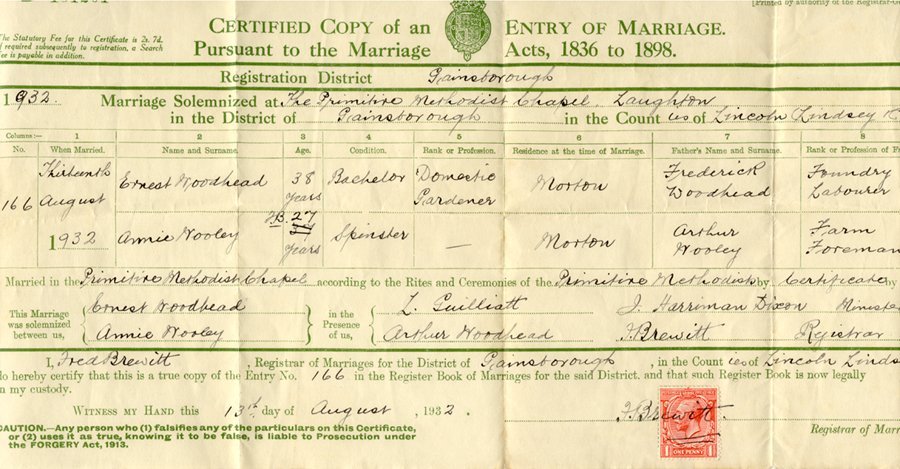 [Printed by authority of the Registrar-
The Statutory Fee for this Certificate is 2s. 7d.
If required subsequently to registration, a Search
Fee is payable in addition.
CERTIFIED COPY of an ENTRY OF MARRIAGE.
Pursuant to the Marriage Acts, 1836 to 1898.
Registration District Gainsborough
1932. Marriage Solemnized at The Primitive Methodist Chapel, Laughton
in the District of Gainsborough in the Counties of Lincoln Lindsey
Columns:— 1 2 3 4 5 6 7 8
No. When Married. Name and Surname. Age. Condition. Rank or Profession. Residence at the time of Marriage. Father's Name and Surname. Rank or Profession of F
166 Thirteenth August 1932
Ernest Woodhead 38 years Bachelor Domestic Gardener Morton Frederick Woodhead Foundry Labourer
Annie Wooley 27 years Spinster — Morton Arthur Wooley Farm Foreman
Married in the Primitive Methodist Chapel according to the Rites and Ceremonies of the Primitive Methodists by Certificate by
This Marriage was solemnized between us, Ernest Woodhead Annie Wooley in the Presence of us, L. Guilliatt Arthur Woodhead J. Harriman Dixon Minister F Brewitt Registrar
I, Fred Brewitt, Registrar of Marriages for the District of Gainsborough, in the Counties of Lincoln Linds
do hereby certify that this is a true copy of the Entry No. 166 in the Register Book of Marriages for the said District, and that such Register Book is now legally
in my custody.
WITNESS MY HAND this 13th day of August, 1932.
F Brewitt.
Registrar of Marri
CAUTION.—Any person who (1) falsifies any of the particulars on this Certificate,
or (2) uses it as true, knowing it to be false, is liable to Prosecution under
the FORGERY Act, 1913.
1 ONE PENNY 1